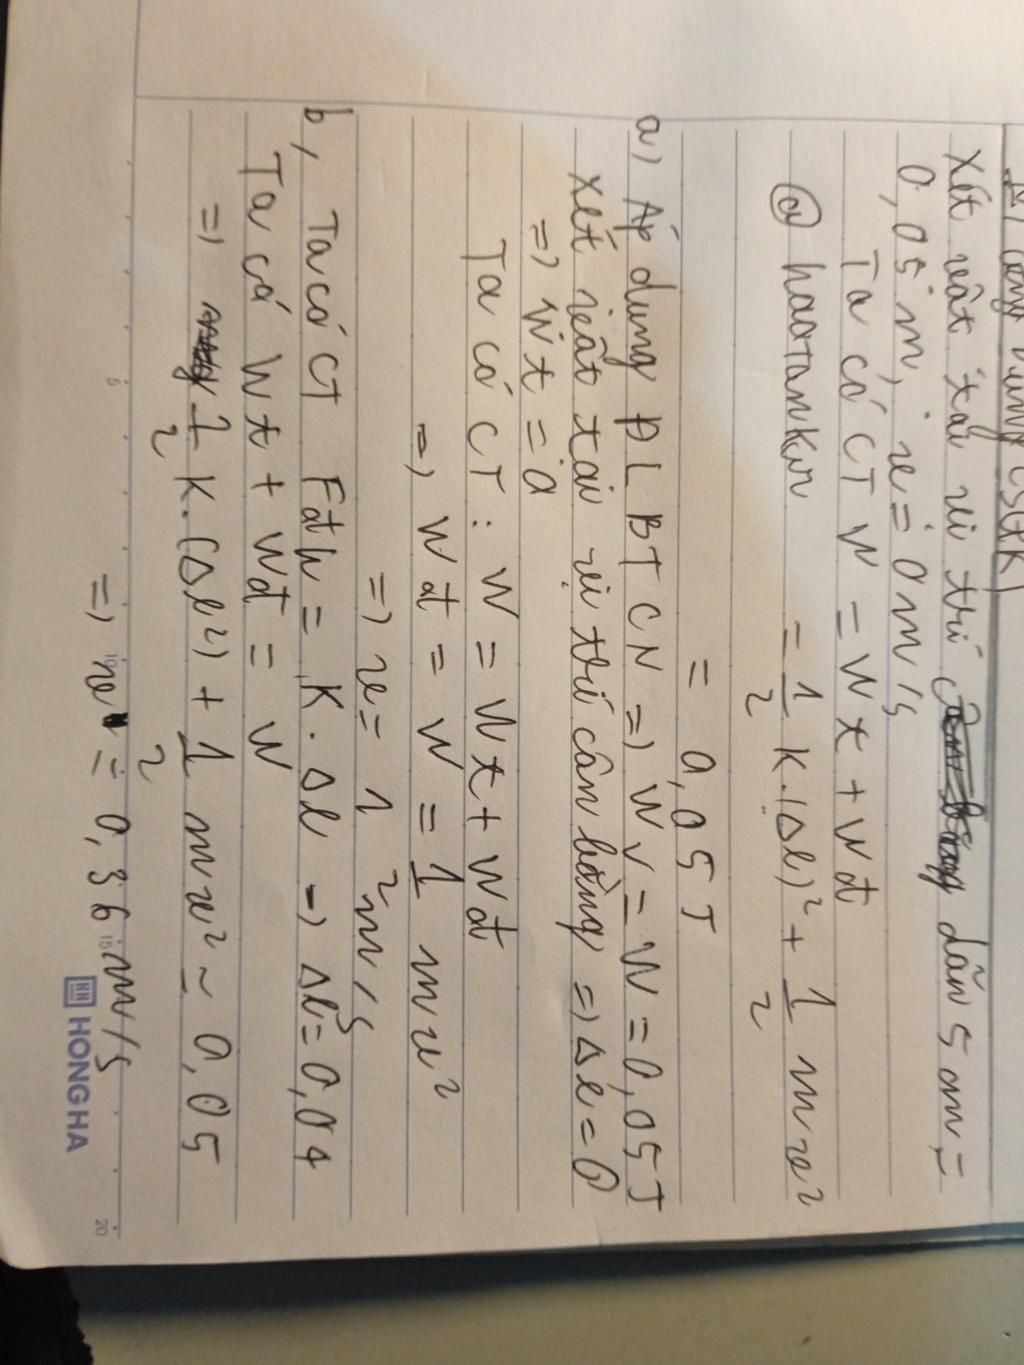 Xét vật tại vị trí dãn 5 cm =
0,05 m, v = 0 m/s
Ta có CT W = Wt + Wđ
@ haotankvn = 1/2 K.(Δl)² + 1/2 mv²
= 0,05 J
a) Áp dụng ĐL BTCN => W = W = 0,05 J
Xét vật tại vị trí cân bằng => Δl = 0
=> Wt = 0
Ta có CT: W = Wt + Wđ
=> Wđ = W = 1/2 mv²
=> v = 1 m/s
b, Ta có CT Fđh = K.Δl -> Δl = 0,04
Ta có Wt + Wđ = W
=> 1/2 K.(Δl²) + 1/2 mv² = 0,05
=> v = 0,36 m/s
HONG HA
5
10
15
20